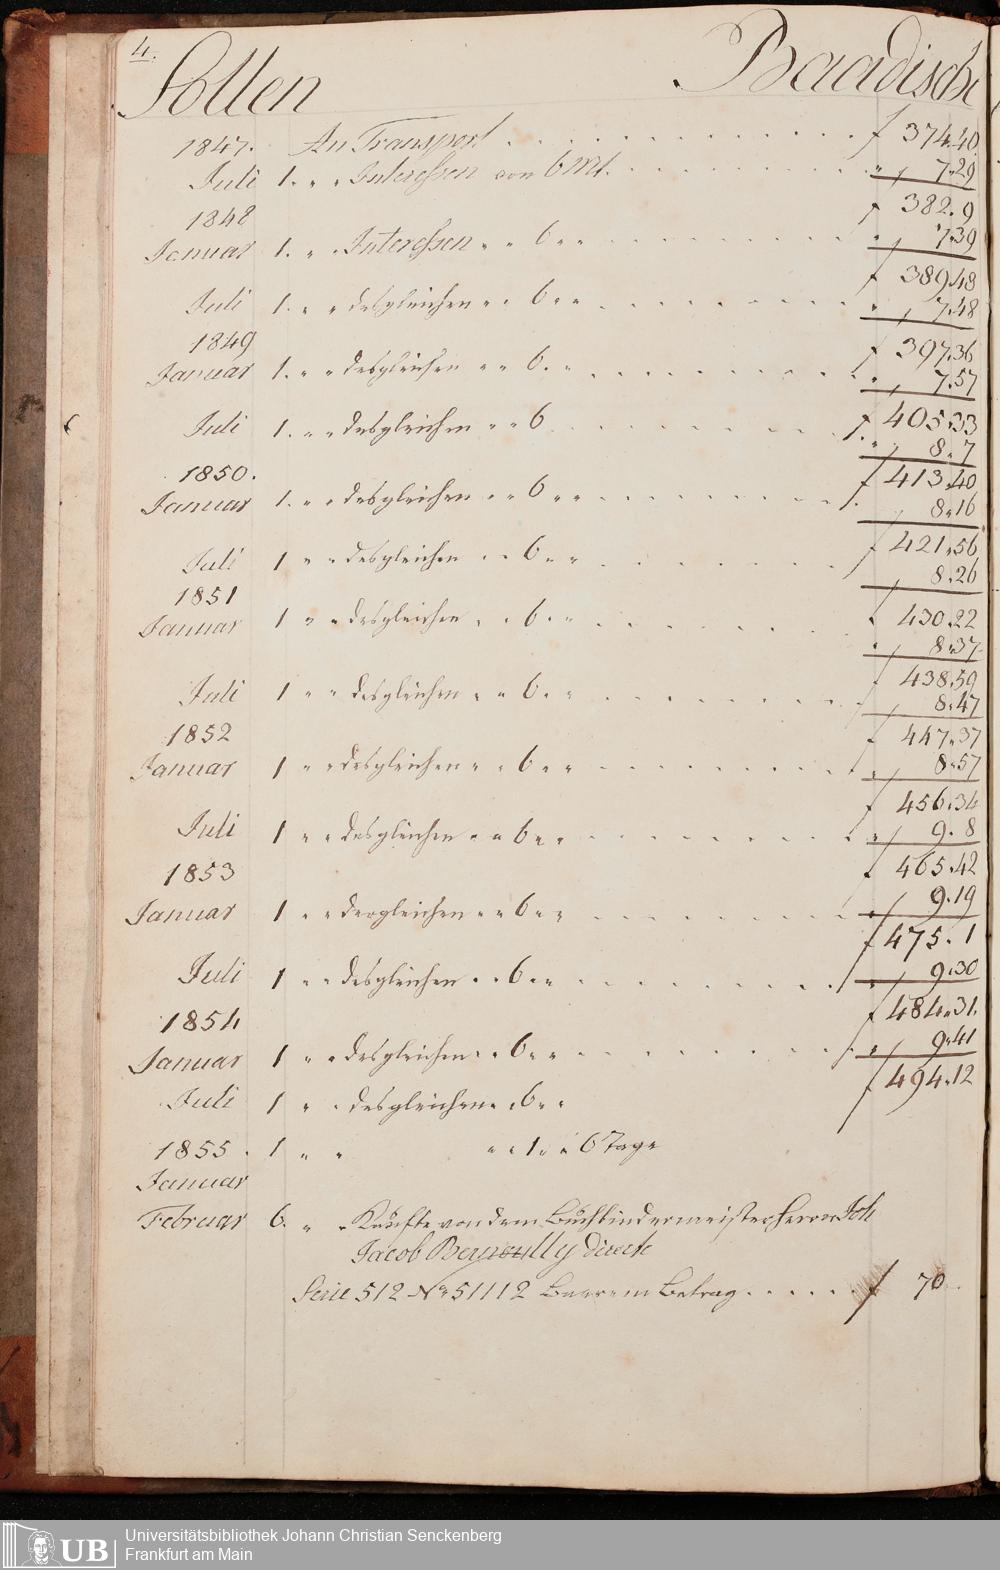 4.
Sollen Baadische
1847. An Transport . . . . . . . . . . f 374.40
Juli 1. " " Interessen von 6 Mt. . . . . . . . . . " 7.29
f 382.9
1848
Januar 1. " " Interessen " " 6 " " . . . . . . . . . " 7.39
f 389.48
Juli 1. " " desgleichen " " 6 " " . . . . . . . . . " 7.48
1849
f 397.36
Januar 1. " " desgleichen " " 6. " . . . . . . . . . " 7.57
f 405.33
Juli 1. " " desgleichen " " 6 . . . . . . . . . " 8.7
1850.
f 413.40
Januar 1. " " desgleichen " " 6 " " . . . . . . . . . 8.16
f 421.56
Juli 1 " " desgleichen " " 6 " " . . . . . . . . . 8.26
1851
430.22
Januar 1 " " desgleichen " " 6 " " . . . . . . . . . " 8.37
f 438.59
Juli 1 " " desgleichen " " 6 " " . . . . . . . . . 8.47
1852
f 447.37
Januar 1 " " desgleichen " " 6 " " . . . . . . . . . " 8.57
f 456.34
Juli 1 " " desgleichen " " 6 " " . . . . . . . . . " 9.8
1853
f 465.42
Januar 1 " " desgleichen " " 6 " " . . . . . . . . . " 9.19
f 475.1
Juli 1 " " desgleichen " " 6 " " . . . . . . . . . " 9.30
1854
f 484.31.
Januar 1 " " desgleichen " " 6 " " . . . . . . . . . " 9.41
f 494.12
Juli 1 " " desgleichen " " 6 " "
1855. 1 " " " " 1 " " 6 Tage
Januar
Februar 6. " " Kaufte von dem Buchbindermeister Herrn Joh
Jacob Bernoully directe
Serie 512 No 51112 Baarem Betrag . . . . . . f 70
UB Universitätsbibliothek Johann Christian Senckenberg
Frankfurt am Main